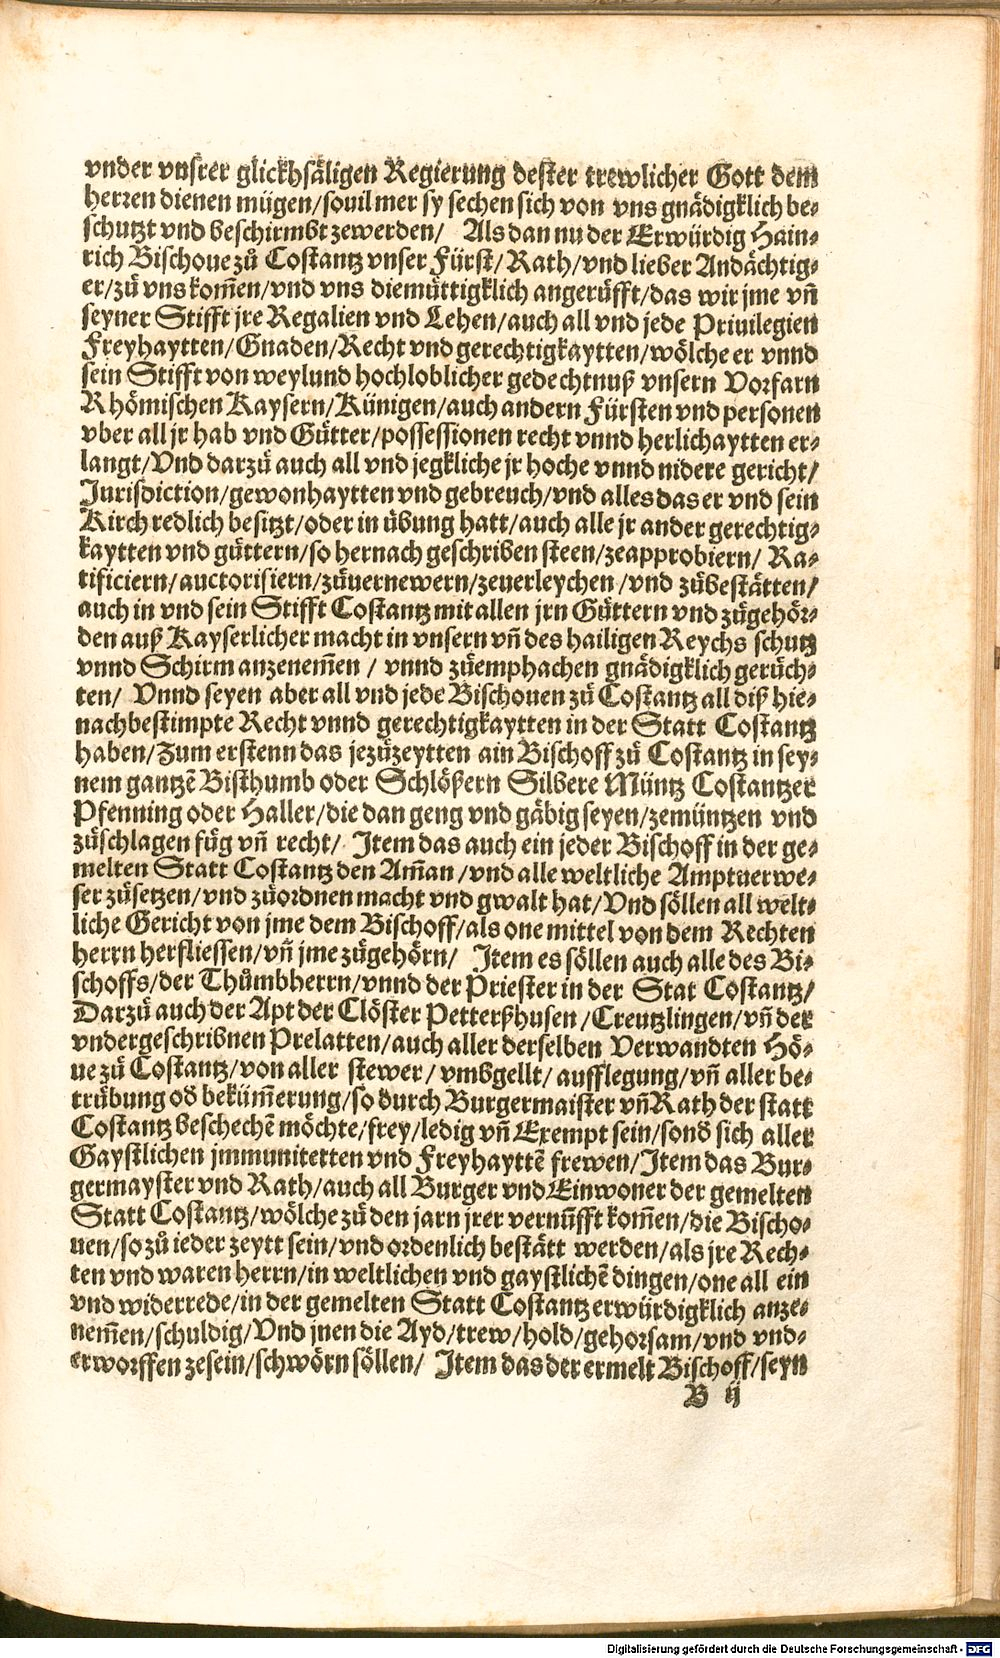 vnder vnsrer glickhsäligen Regierung dester trewlicher Gott dem
herren dienen mügen/souil mer sy sechen sich von vns gnädigklich be⸗
schutzt vnd beschirmbt zewerden/ Als dan nu der Erwürdig Hain⸗
rich Bischoue zů Costantz vnser Fürst/Rath/vnd lieber Andächtig⸗
er/zů vns kom̃en/vnd vns diemüttigklich angerüfft/das wir jme vñ
seyner Stifft jre Regalien vnd Lehen/auch all vnd jede Priuilegien
Freyhaytten/Gnaden/Recht vnd gerechtigkaytten/wölche er vnnd
sein Stifft von weylund hochloblicher gedechtnuß vnsern Vorfarn
Rhömischen Kaysern/Künigen/auch andern Fürsten vnd personen
vber all jr hab vnd Gütter/possessionen recht vnnd herlichaytten er⸗
langt/Vnd darzů auch all vnd jegkliche jr hoche vnnd nidere gericht/
Jurisdiction/gewonhaytten vnd gebreuch/vnd alles das er vnd sein
Kirch redlich besitzt/oder in übung hatt/auch alle jr ander gerechtig⸗
kaytten vnd güttern/so hernach geschriben steen/zeapprobiern/ Ra⸗
tificiern/auctorisiern/zůuernewern/zeuerleychen/vnd zůbestätten/
auch in vnd sein Stifft Costantz mit allen jrn Güttern vnd zůgehör⸗
den auß Kayserlicher macht in vnsern vñ des hailigen Reychs schutz
vnnd Schirm anzenem̃en / vnnd zůemphachen gnädigklich gerüch⸗
ten/ Vnnd seyen aber all vnd jede Bischouen zů Costantz all diß hie⸗
nachbestimpte Recht vnnd gerechtigkaytten in der Statt Costantz
haben/Zum erstenn das jezůzeytten ain Bischoff zů Costantz in sey⸗
nem gantzẽ Bisthumb oder Schlößern Silbere Müntz Costantzer
Pfenning oder Haller/die dan geng vnd gäbig seyen/zemüntzen vnd
zůschlagen fůg vñ recht/ Jtem das auch ein jeder Bischoff in der ge⸗
melten Statt Costantz den Am̃an/vnd alle weltliche Amptuerwe⸗
ser zůsetzen/vnd zůordnen macht vnd gwalt hat/Vnd söllen all welt⸗
liche Gericht von jme dem Bischoff/als one mittel von dem Rechten
herrn herfliessen/vñ jme zůgehörn/ Jtem es söllen auch alle des Bi⸗
schoffs/der Thůmbherrn/vnnd der Priester in der Stat Costantz/
Darzů auch der Apt der Clöster Petterßhusen/Creutzlingen/vñ der
vndergeschribnen Prelatten/auch aller derselben Verwandten Hö⸗
ue zů Costantz/von aller stewer/vmbgellt/aufflegung/vñ aller be⸗
trübung od̃ beküm̃erung/so durch Burgermaister vñ Rath der statt
Costantz beschechẽ möchte/frey/ledig vñ Exempt sein/sond̃ sich aller
Gaystlichen jmmunitetten vnd Freyhayttẽ frewen/Jtem das Bur⸗
germayster vnd Rath/auch all Burger vnd Einwoner der gemelten
Statt Costantz/wölche zů den jarn jrer vernüfft kom̃en/die Bischo⸗
uen/so zů ieder zeytt sein/vnd ordenlich bestätt werden/als jre Rech⸗
ten vnd waren herrn/in weltlichen vnd gaystlichẽ dingen/one all ein
vnd widerrede/in der gemelten Statt Costantz erwürdigklich anze⸗
nem̃en/schuldig/Vnd jnen die Ayd/trew/hold/gehorsam/vnd vnd⸗
erworffen zesein/schwörn söllen/ Jtem das der ermelt Bischoff/seyn
B ij
Digitalisierung gefördert durch die Deutsche Forschungsgemeinschaft - DFG